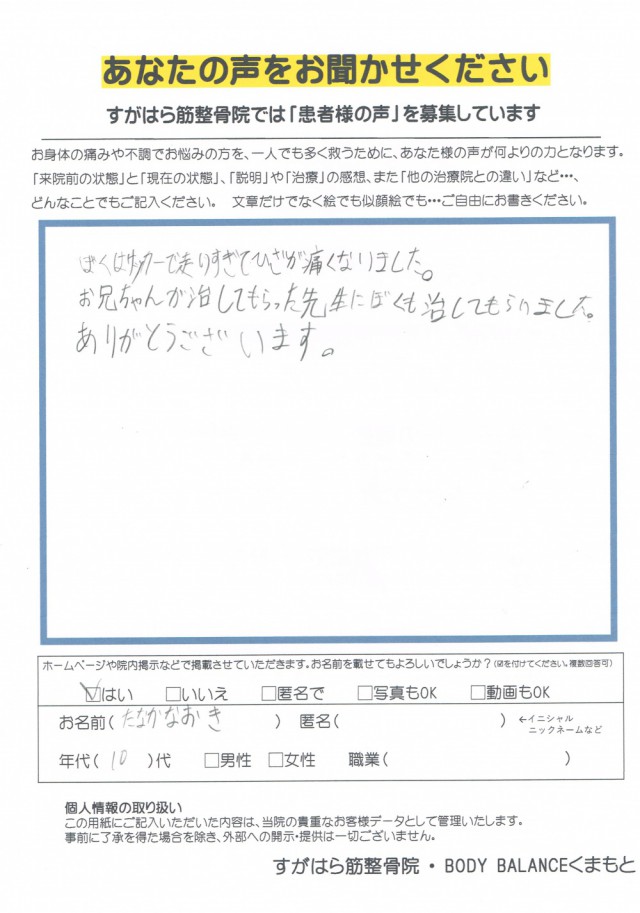 あなたの声をお聞かせください
すがはら筋整骨院では「患者様の声」を募集しています
お身体の痛みや不調でお悩みの方を、一人でも多く救うために、あなた様の声が何よりの力となります。
「来院前の状態」と「現在の状態」、「説明」や「治療」の感想、また「他の治療院との違い」など･･･、
どんなことでもご記入ください。 文章だけでなく絵でも似顔絵でも･･･ご自由にお書きください。
ぼくはサッカーで走りすぎてひざが痛くなりました。
お兄ちゃんが治してもらった先生にぼくも治してもらいました。
ありがとうございます。
ホームページや院内掲示などで掲載させていただきます。お名前を載せてもよろしいでしょうか？(☑を付けてください。複数回答可)
☑はい □いいえ □匿名で □写真もOK □動画もOK
お名前( たなかなおき ) 匿名( ) ←イニシャル
ニックネームなど
年代( 10 )代 □男性 □女性 職業( )
個人情報の取り扱い
この用紙にご記入いただいた内容は、当院の貴重なお客様データとして管理いたします。
事前に了承を得た場合を除き、外部への開示・提供は一切ございません。
すがはら筋整骨院 ・ BODY BALANCEくまもと